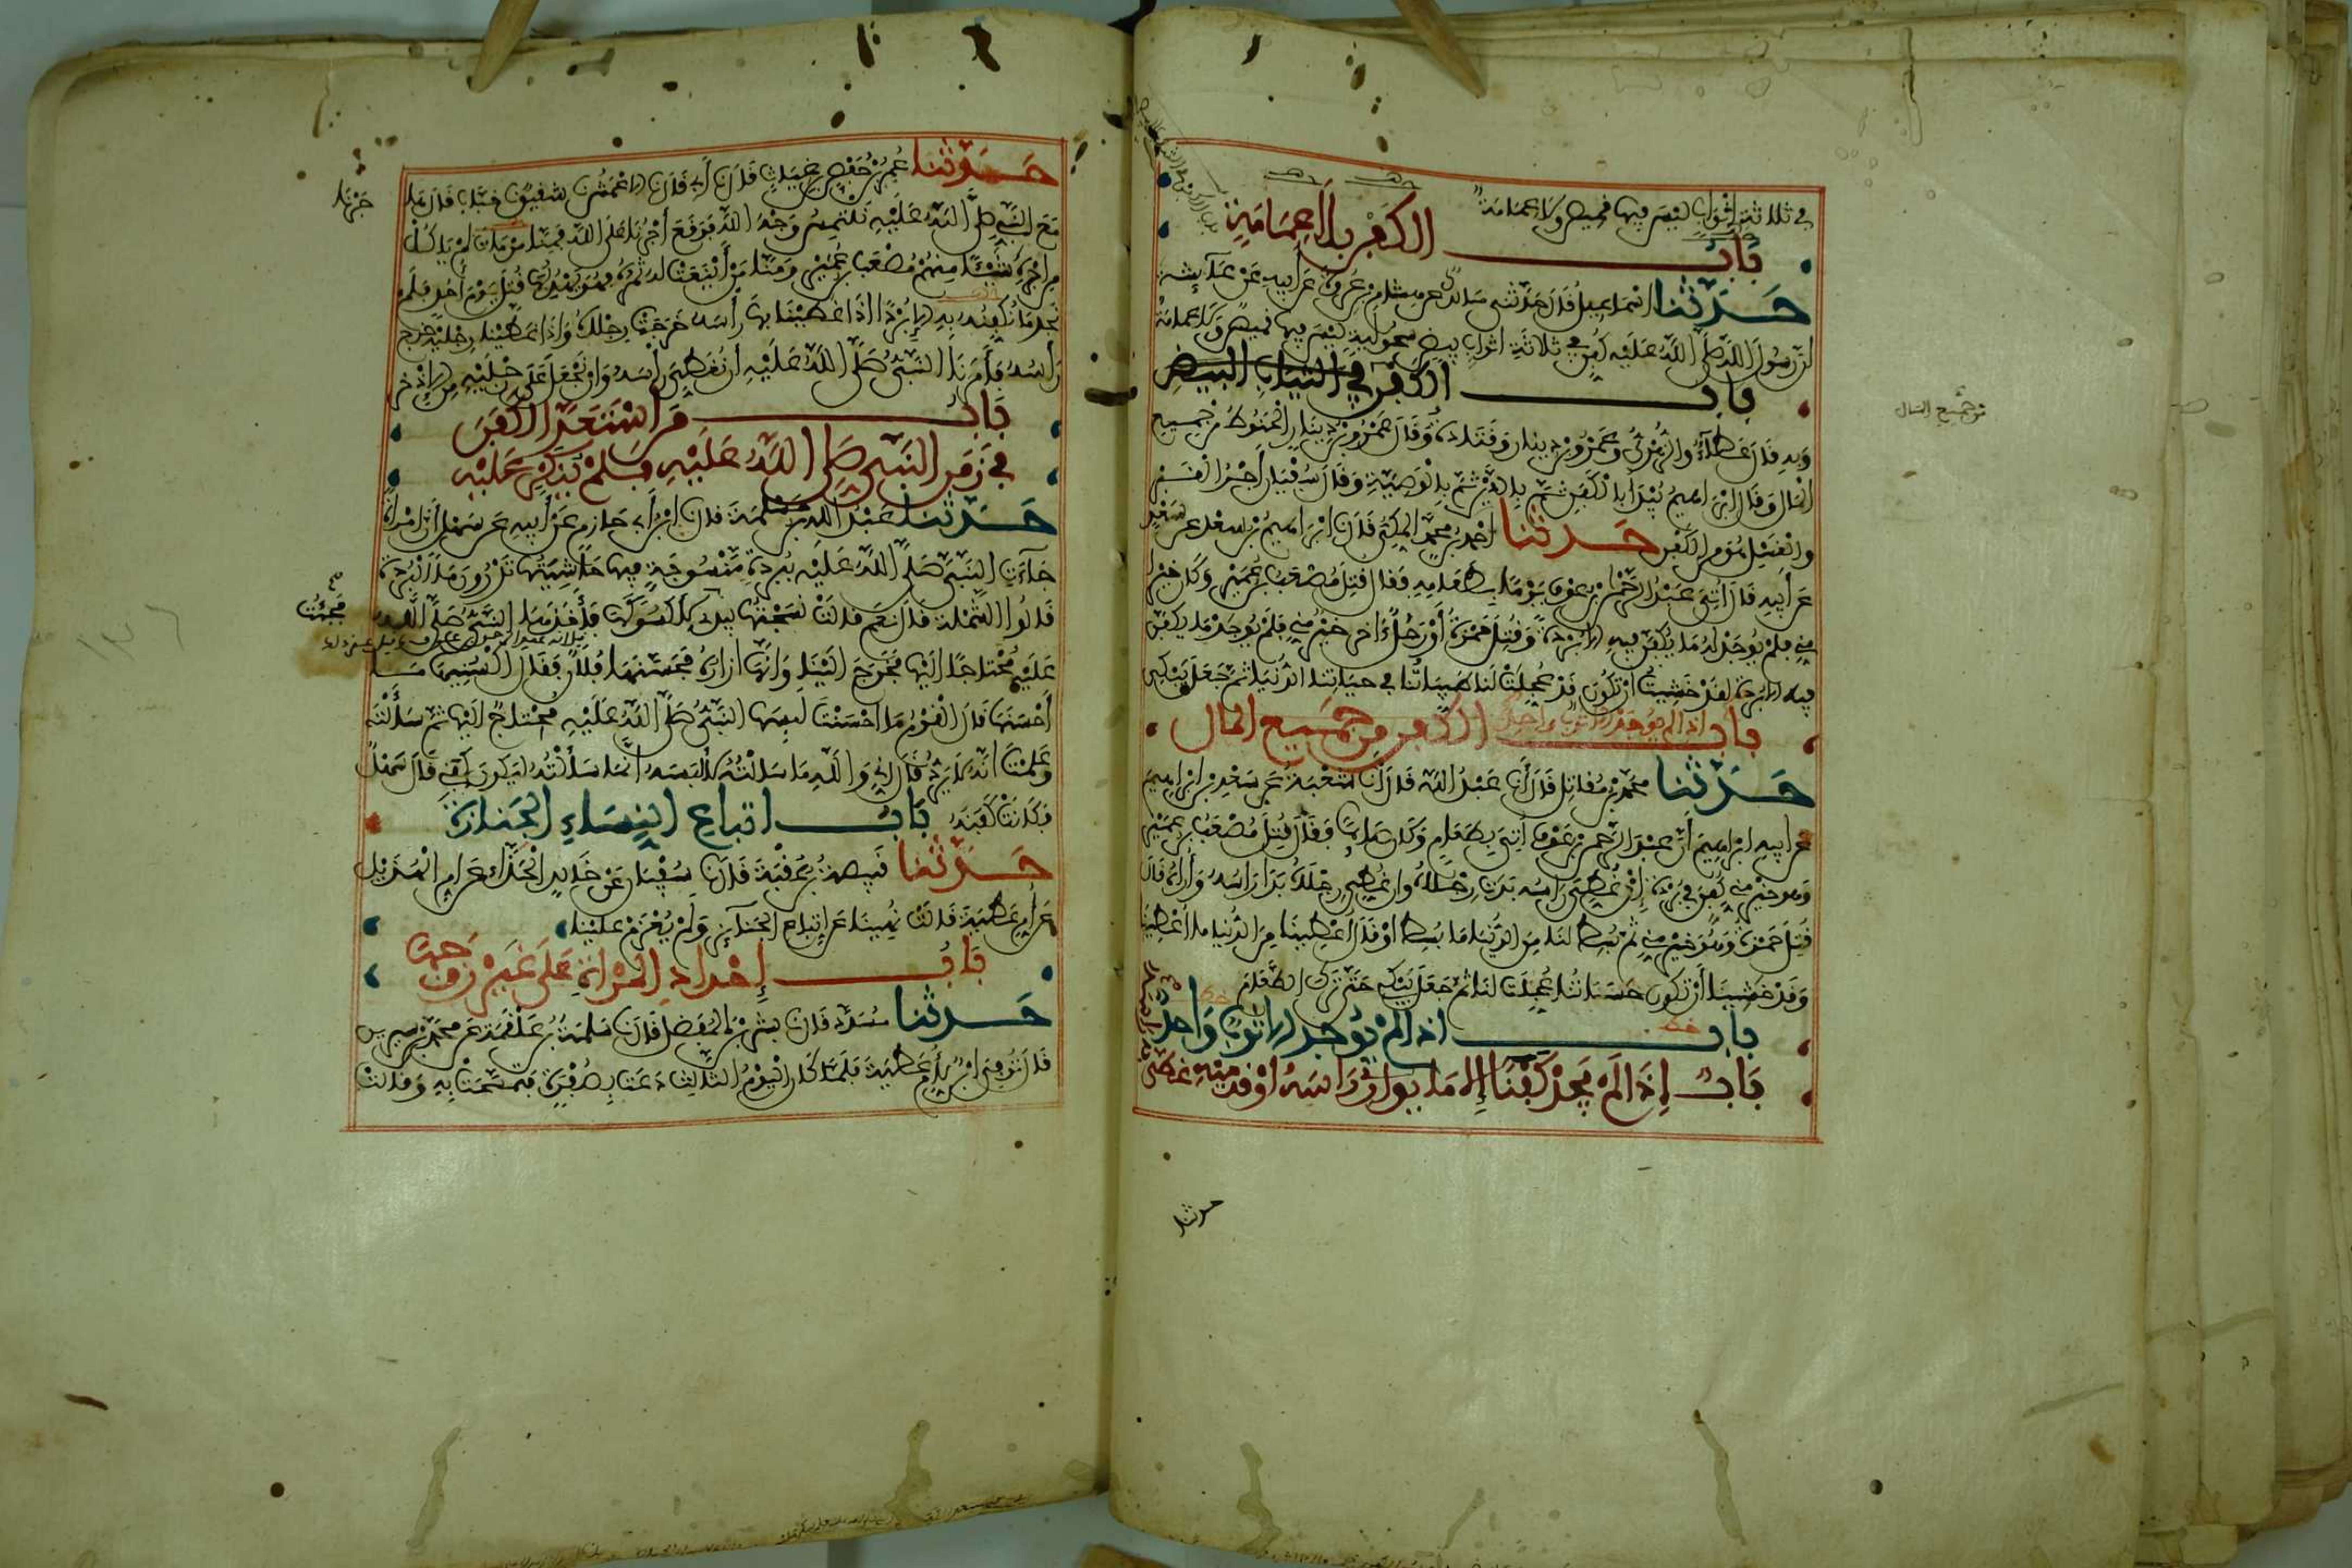 في ثلاثة اثواب ليس فيها قميص ولا عمامة
باب الكفن بلا عمامة
حدثنا اسماعيل قال حدثني مالك عن هشام بن عروة عن ابيه عن عائشة
ان رسول الله صلى الله عليه كفن في ثلاثة اثواب بيض سحولية ليس فيها قميص ولا عمامة
باب الكفن في الثياب البيض
وبه قال عطاء والزهري وعمرو بن دينار وقتادة وقال عمرو بن دينار الحنوط من جميع
المال وقال ابراهيم يبدا بالكفن ثم بالدين ثم بالوصية وقال سفيان اجر القبر
والغسل هو من الكفن حدثنا احمد بن محمد المكي قال نا ابراهيم بن سعد عن سعد
عن ابيه قال اتي عبد الرحمن بن عوف يوما بطعامه فقال قتل مصعب بن عمير وكان خيرا
مني فلم يوجد له ما يكفن فيه الا بردة وقتل حمزة او رجل اخر خير مني فلم يوجد ما يكفن
فيه الا بردة لقد خشيت ان تكون قد عجلت لنا طيباتنا في حياتنا الدنيا ثم جعل يبكي
باب الكفن من جميع المال
اذا لم يوجد الا ثوب واحد
حدثنا محمد بن مقاتل قال انا عبد الله قال انا شعبة عن سعد بن ابراهيم
عن ابيه ابراهيم ان عبد الرحمن بن عوف اتي بطعام وكان صائما فقال قتل مصعب بن عمير
وهو خير مني كفن في بردة ان غطي راسه بدت رجلاه وان غطي رجلاه بدا راسه واراه قال
قتل حمزة وهو خير مني ثم بسط لنا من الدنيا ما بسط او قال اعطينا من الدنيا ما اعطينا
وقد خشينا ان تكون حسناتنا عجلت لنا ثم جعل يبكي حتى ترك الطعام
باب اذا لم يوجد الا ثوب واحد
باب اذا لم يجد كفنا الا ما يواري راسه او قدميه غطى
من جميع المال
حدثنا
حدثنا عمر بن حفص بن غياث قال نا ابي قال نا الاعمش نا شقيق نا خباب قال هاجرنا
مع النبي صلى الله عليه نلتمس وجه الله فوقع اجرنا على الله فمنا من مات لم ياكل
من اجره شيئا منهم مصعب بن عمير ومنا من اينعت له ثمرته فهو يهدبها قتل يوم احد فلم
نجد ما نكفنه به الا بردا اذا غطينا بها راسه خرجت رجلاه واذا غطينا رجليه خرج
راسه فامرنا النبي صلى الله عليه ان نغطي راسه وان نجعل على رجليه من الاذخر
باب من استعد الكفن
في زمن النبي صلى الله عليه وسلم فلم ينكر عليه
حدثنا عبد الله بن مسلمة قال نا ابن ابي حازم عن ابيه عن سهل ان امراة
جاءت النبي صلى الله عليه ببردة منسوجة فيها حاشيتها تدرون ما البردة
قالوا الشملة قال نعم قالت نسجتها بيدي لاكسوكها فاخذها النبي صلى الله
عليه محتاجا اليها فخرج الينا وانها ازاره فحسنها فلان فقال اكسنيها ما
احسنها قال القوم ما احسنت لبسها النبي صلى الله عليه محتاج اليها ثم سالته
وعلمت انه لا يرد قال اني والله ما سالته لالبسه انما سالته ليكون كفني قال سهل
فكانت كفنه باب اتباع النساء الجنازة
حدثنا قبيصة بن عقبة قال نا سفيان عن خالد الحذاء عن ام الهذيل
عن ام عطية قالت نهينا عن اتباع الجنائز ولم يعزم علينا
باب احداد المراة على غير زوجها
حدثنا مسدد قال نا بشر بن المفضل قال نا سلمة بن علقمة عن محمد بن سيرين
قال توفي ابن لام عطية فلما كان اليوم الثالث دعت بصفرة فتمسحت به وقالت